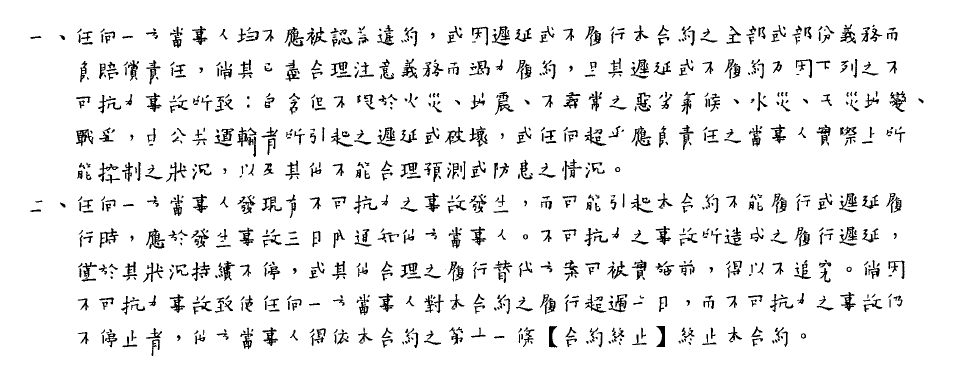 一、任何一方當事人均不應被認為違約，或因遲延或不履行本合約之全部或部份義務而
負賠償責任，倘其已盡合理注意義務而竭力履約，且其遲延或不履約乃因下列之不
可抗力事故所致：包含但不限於火災、地震、不尋常之惡劣氣候、水災、天災地變、
戰爭，由公共運輸者所引起之遲延或破壞，或任何超乎應負責任之當事人實際上所
能控制之狀況，以及其他不能合理預測或防患之情況。
二、任何一方當事人發現有不可抗力之事故發生，而可能引起本合約不能履行或遲延履
行時，應於發生事故三日內通知他方當事人。不可抗力之事故所造成之履行遲延，
僅於其狀況持續不停，或其他合理之履行替代方案可被實施前，得以不追究。倘因
不可抗力事故致使任何一方當事人對本合約之履行超過 日，而不可抗力之事故仍
不停止者，他方當事人得依本合約之第十一條【合約終止】終止本合約。